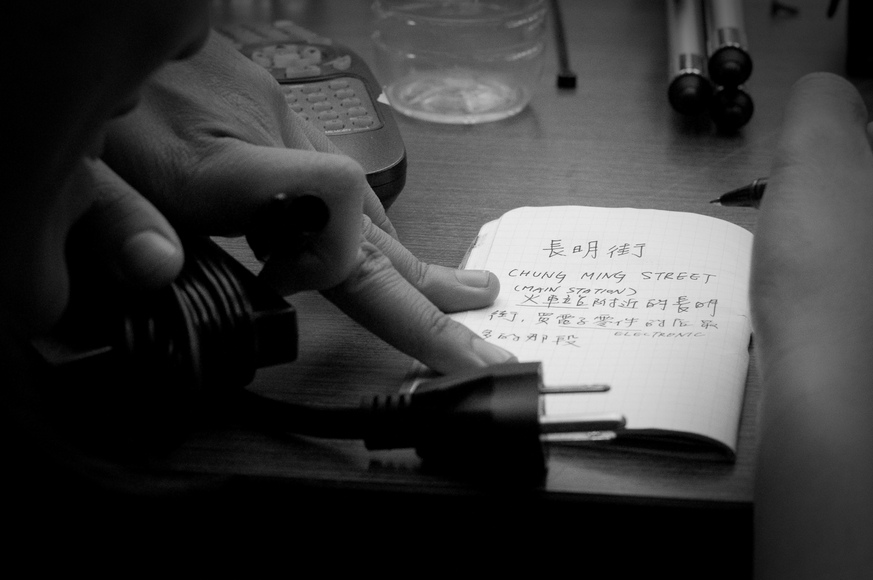 長明街
CHUNG MING STREET
(MAIN STATION)
火車站附近的長明
街,買電子零件的店最
ELECTRONIC
多的那段